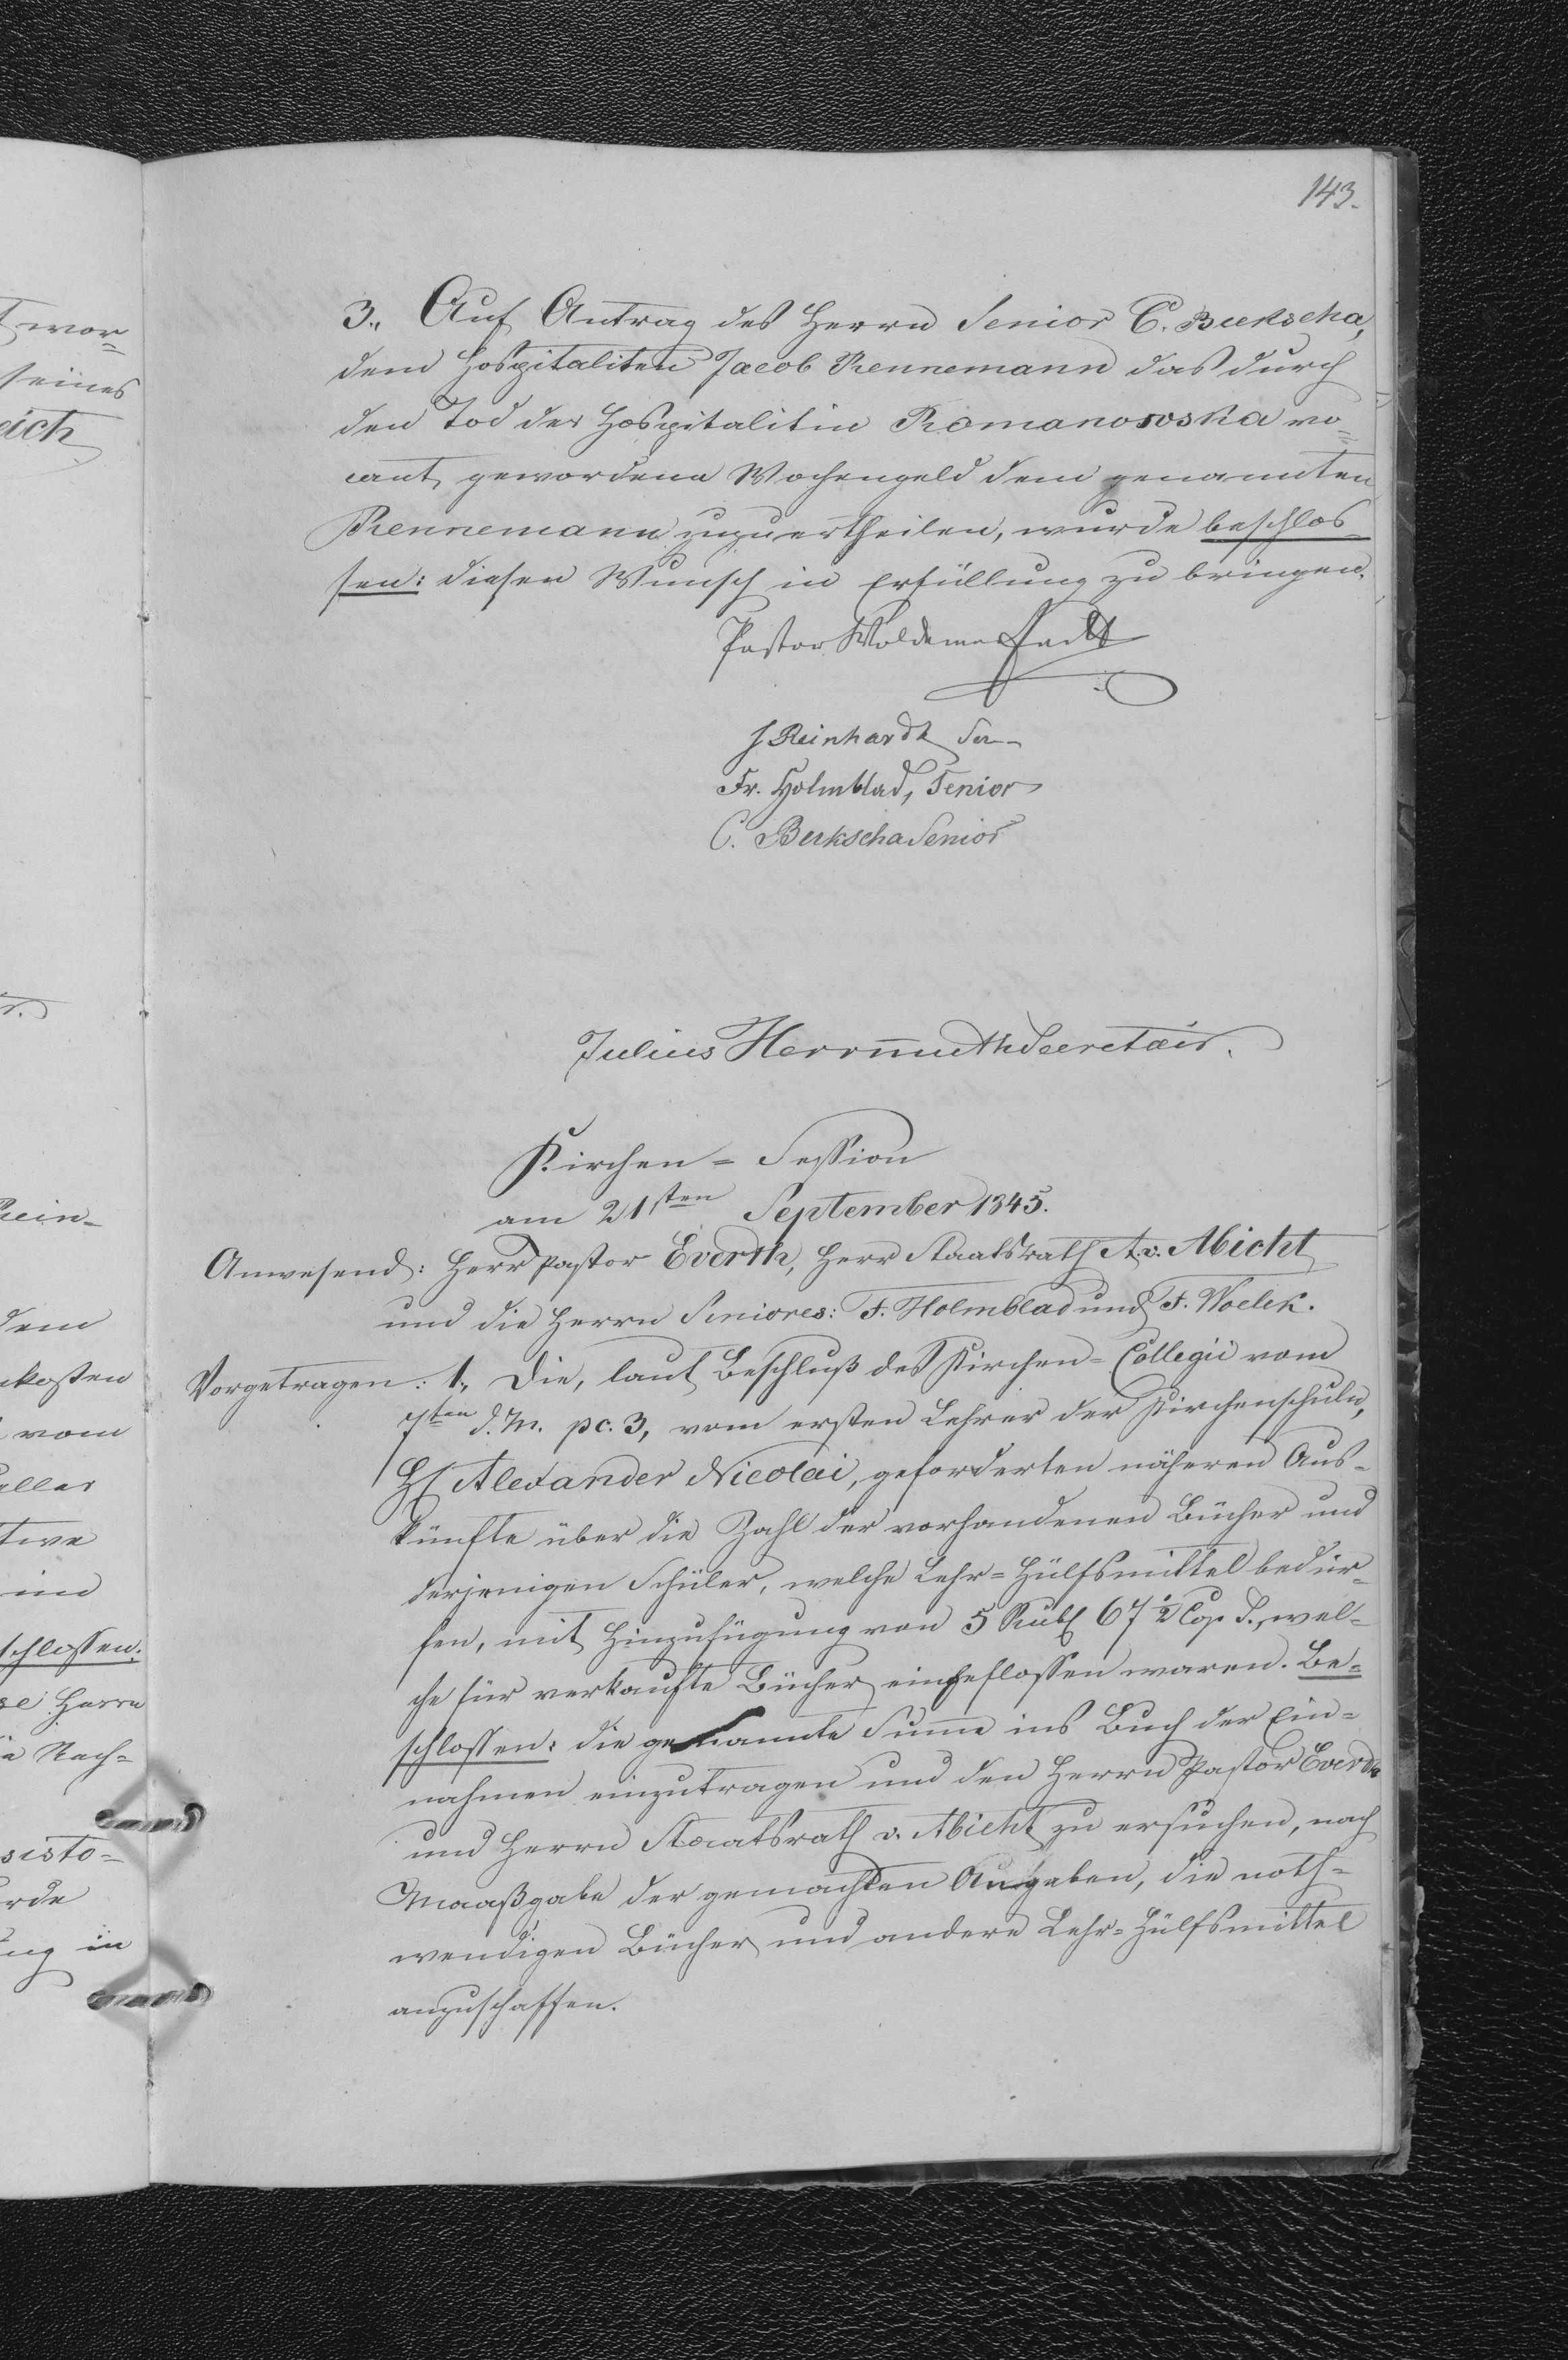 143.
3., Auf Antrag des Herrn Senior C. Bukscha,
dem Hospitaliten Jacob Rennemann das durch
den Tod der Hospitalitin Romanowska va=
cant gewordene Wochengeld dem genannten
Rennemann zuzuertheilen, wurde beschlos
sen: diesen Wunsch in Erfüllung zu bringen.
Pastor Woldemar
J Reinhardt Sen
Fr. Holmblad, Senior
C. Bukscha Senior
Julius Herrmuth Secretair.
Kirchen = Session
am 21sten September 1845.
Anwesend: Herr Pastor Everth, Herr Staatsrath A. v. Abicht
und die Herrn Seniores: F. Holmblad und F. Woelck.
Vorgetragen: 1., Die, laut Beschluß des Kirchen=Collegii vom
7ten d. M. pc. 3, vom ersten Lehrer der Kirchenschule,
H. Alexander Nicolai, geforderten näheren Aus=
künfte über die Zahl der vorhandenen Bücher und
derjenigen Schüler, welche Lehr=Hülfsmittel bedür=
fen, mit Hinzufügung von 5 Rubl 67½ Cop S., wel=
che für verkaufte Bücher eingeflossen waren. Be=
schlossen: die genannte Summe ins Buch der Ein=
nahmen einzutragen und den Herrn Pastor Everth
und Herrn Staatsrath v. Abicht zu ersuchen, nach
Maaßgabe der gemachten Angaben, die noth=
wendigen Bücher und andere Lehr=Hülfsmittel
anzuschaffen.